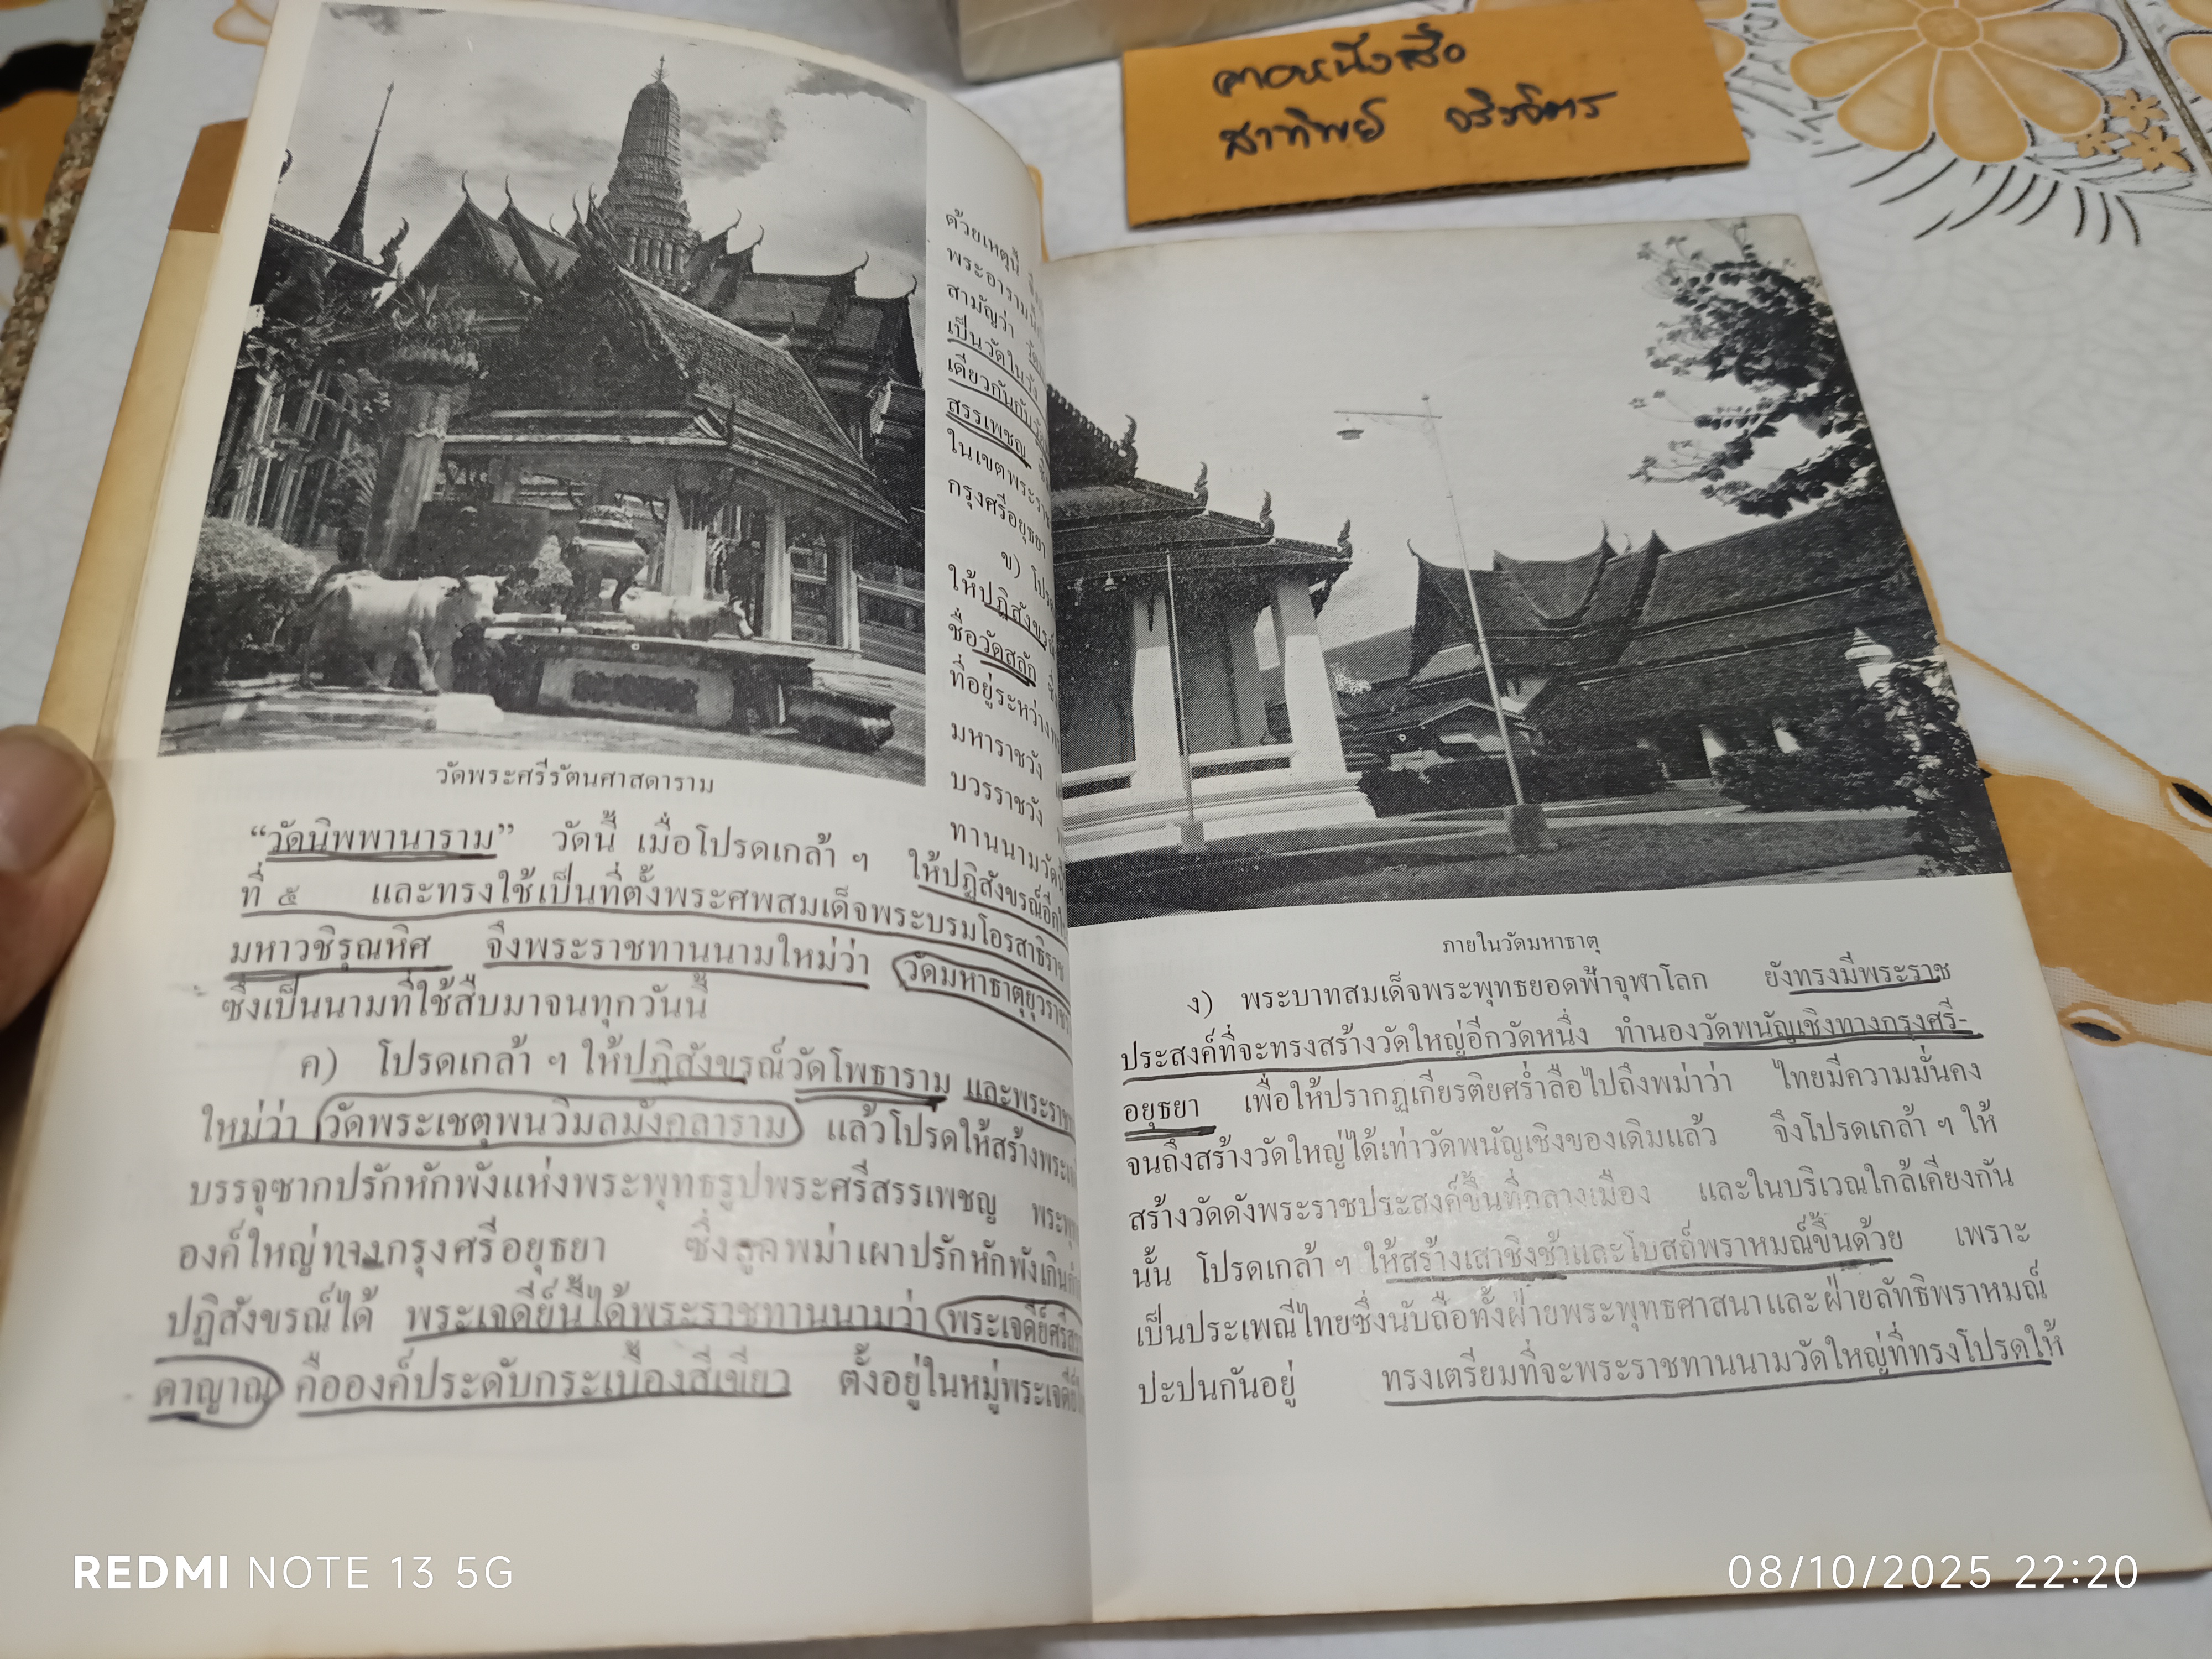 สาทิพย์
ด้วยเหตุนี้
พระอารามนี้
สามัญว่า
เป็นวัดในวัง
เดียวกันกับวัด
สรรเพชญ
ในเขตพระราช
กรุงศรีอยุธยา
ข) โปรด
ให้ปฏิสังขรณ์
ชื่อวัดสลัก
ที่อยู่ระหว่าง
มหาราชวัง
บวรราชวัง
ทานนามวัด
วัดพระศรีรัตนศาสดาราม
“วัดนิพพานาราม” วัดนี้ เมื่อโปรดเกล้า ๆ ให้ปฏิสังขรณ์อีก
ที่ ๕ และทรงใช้เป็นที่ตั้งพระศพสมเด็จพระบรมโอรสาธิราช
มหาวชิรุณหิศ จึงพระราชทานนามใหม่ว่า วัดมหาธาตุยุวราช
ซึ่งเป็นนามที่ใช้สืบมาจนทุกวันนี้
ค) โปรดเกล้า ๆ ให้ปฏิสังขรณ์วัดโพธาราม และพระราช
ใหม่ว่า วัดพระเชตุพนวิมลมังคลาราม แล้วโปรดให้สร้างพระ
บรรจุซากปรักหักพังแห่งพระพุทธรูปพระศรีสรรเพชญ พระพุทธ
องค์ใหญ่ทางกรุงศรีอยุธยา ซึ่งถูกพม่าเผาปรักหักพังเกิน
ปฏิสังขรณ์ได้ พระเจดีย์นี้ได้พระราชทานนามว่า พระเจดีย์ศรีสรร
ดาญาณ คือองค์ประดับกระเบื้องสีเขียว ตั้งอยู่ในหมู่พระเจดีย์
ภายในวัดมหาธาตุ
ง) พระบาทสมเด็จพระพุทธยอดฟ้าจุฬาโลก ยังทรงมีพระราช
ประสงค์ที่จะทรงสร้างวัดใหญ่อีกวัดหนึ่ง ทำนองวัดพนัญเชิงทางกรุงศรี-
อยุธยา เพื่อให้ปรากฏเกียรติยศร่ำลือไปถึงพม่าว่า ไทยมีความมั่นคง
จนถึงสร้างวัดใหญ่ได้เท่าวัดพนัญเชิงของเดิมแล้ว จึงโปรดเกล้า ๆ ให้
สร้างวัดดังพระราชประสงค์ขึ้นที่กลางเมือง และในบริเวณใกล้เคียงกัน
นั้น โปรดเกล้า ๆ ให้สร้างเสาชิงช้าและโบสถ์พราหมณ์ขึ้นด้วย เพราะ
เป็นประเพณีไทยซึ่งนับถือทั้งฝ่ายพระพุทธศาสนาและฝ่ายลัทธิพราหมณ์
ปะปนกันอยู่ ทรงเตรียมที่จะพระราชทานนามวัดใหญ่ที่ทรงโปรดให้
REDMI NOTE 13 5G
08/10/2025 22:20